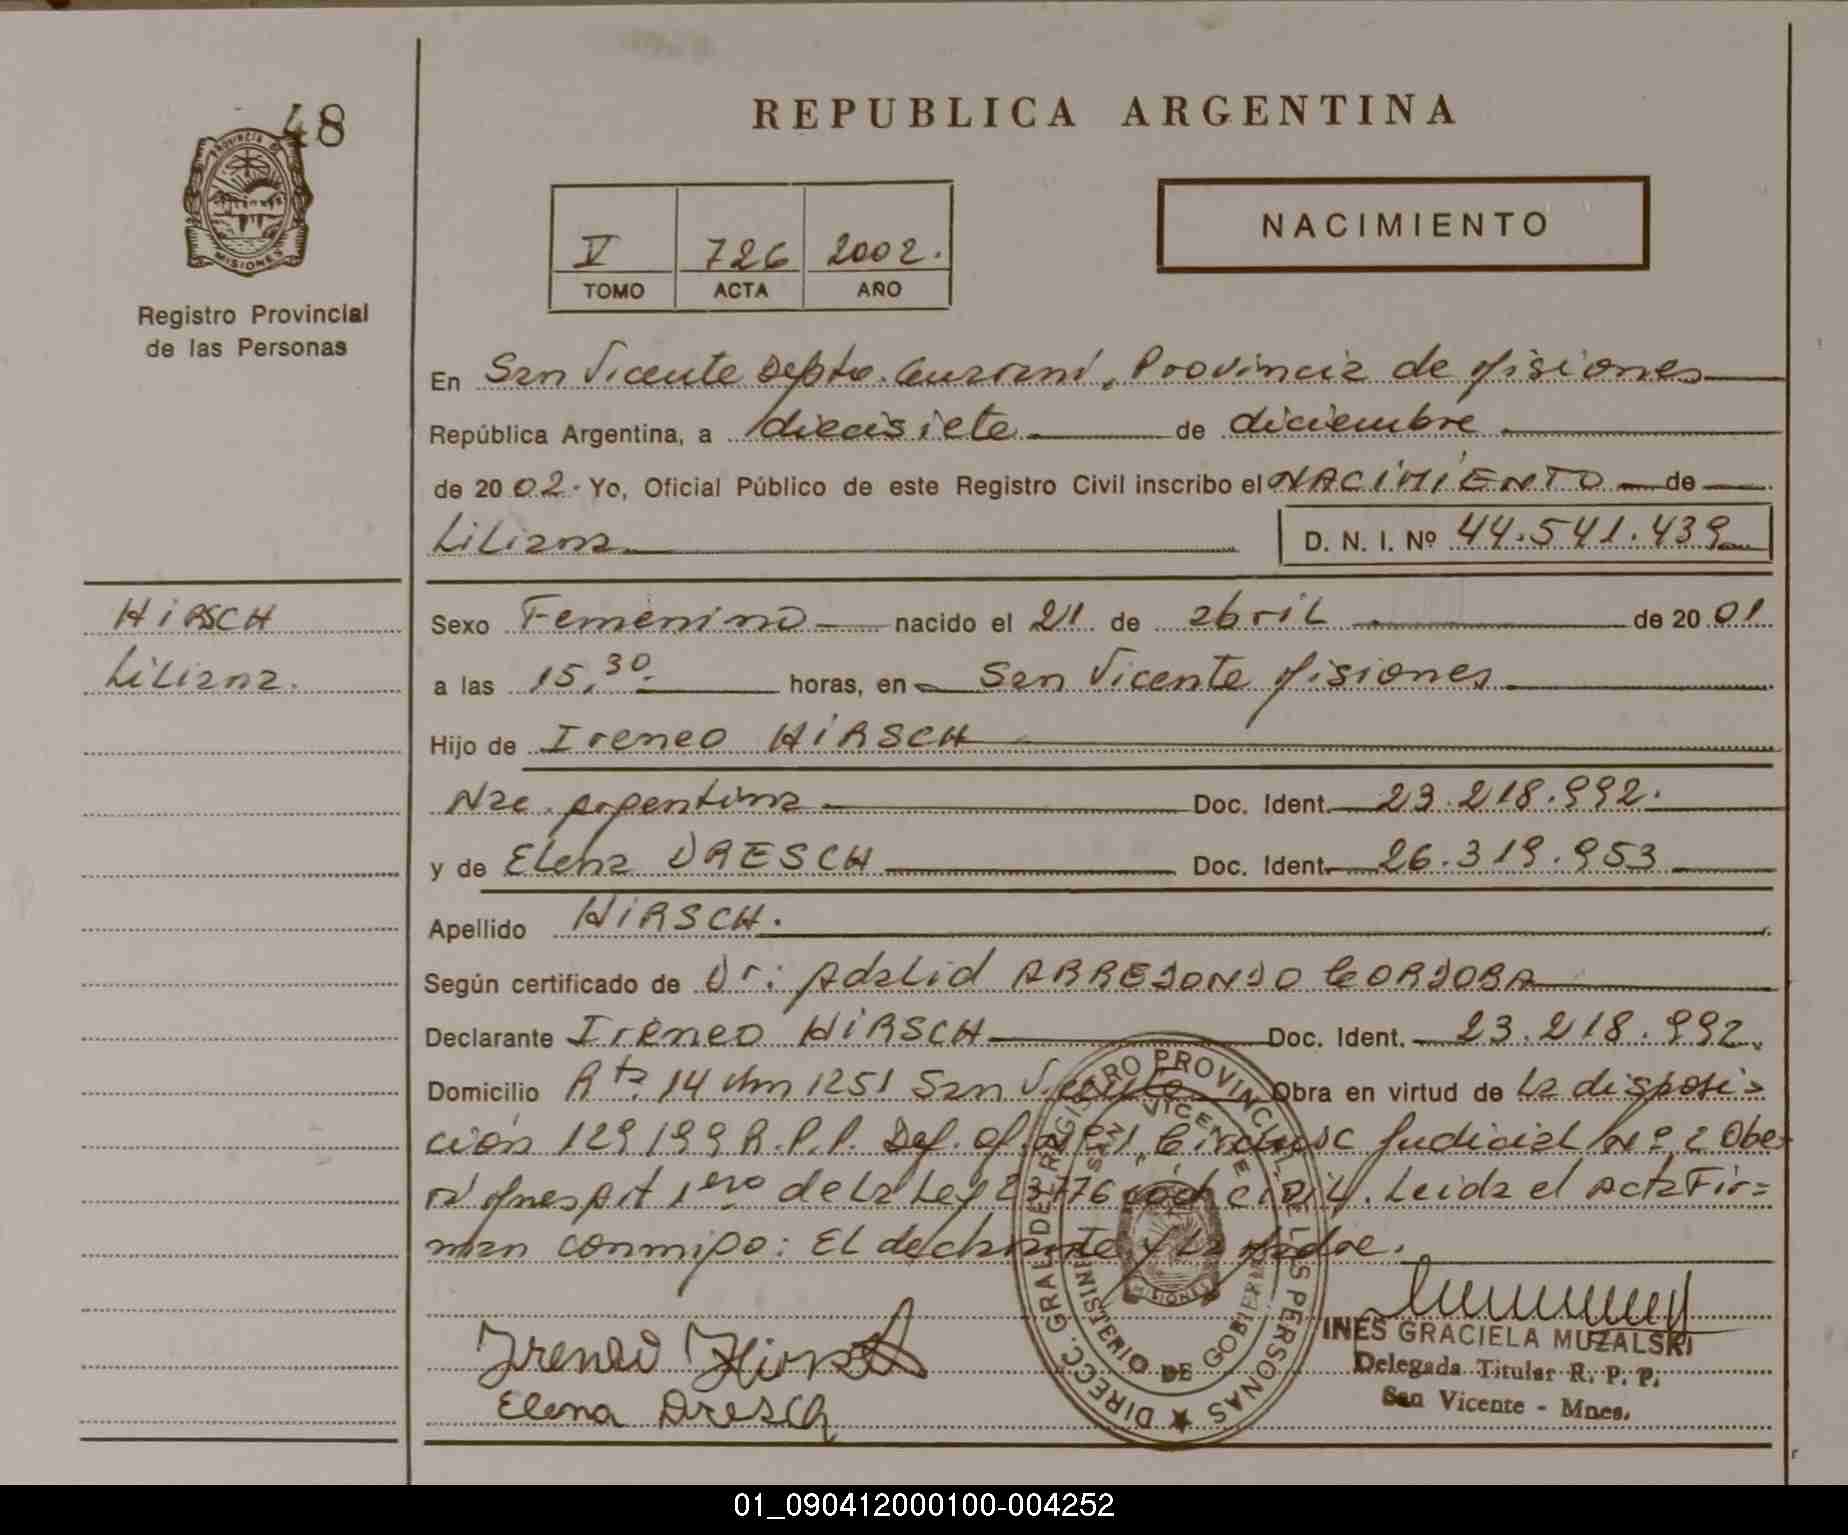 48
PROVINCIA DE
MISIONES
Registro Provincial
de las Personas
HIRSCH
Liliana.
REPUBLICA ARGENTINA
NACIMIENTO
V 726 2002.
TOMO ACTA AÑO
En San Vicente Depto. Guaraní, Provincia de Misiones
República Argentina, a diecisiete de diciembre
de 2002. Yo, Oficial Público de este Registro Civil inscribo el NACIMIENTO de
Liliana D. N. I. Nº 44.541.439
Sexo Femenino nacido el 21 de abril de 2001
a las 15,30. horas, en San Vicente Misiones
Hijo de Ireneo HIRSCH
Nac. Argentina Doc. Ident. 23.218.992.
y de Elena DRESCH Doc. Ident. 26.319.953
Apellido HIRSCH.
Según certificado de Dr: Adalid ARREDONDO CORDOBA
Declarante Ireneo HIRSCH Doc. Ident. 23.218.992.
Domicilio Rta. 14 Km 1251 San Vicente Obra en virtud de La disposi=
ción 129/99 R.P.P. Def. Of. Nº 1 Judicial Nº 2 Obe=
rá Mnes Art 1ero de la Ley 23776 civil. Leida el Acta Fir=
man conmigo: El declarante y la Madre.
Ireneo Hirsch
Elena Dresch
DIRECC. GRAL. DEL REGISTRO PROVINCIAL DE LAS PERSONAS
SAN VICENTE
MINISTERIO DE GOBIERNO
MISIONES
INES GRACIELA MUZALSKI
Delegada Titular R. P. P.
San Vicente - Mnes.
01_090412000100-004252